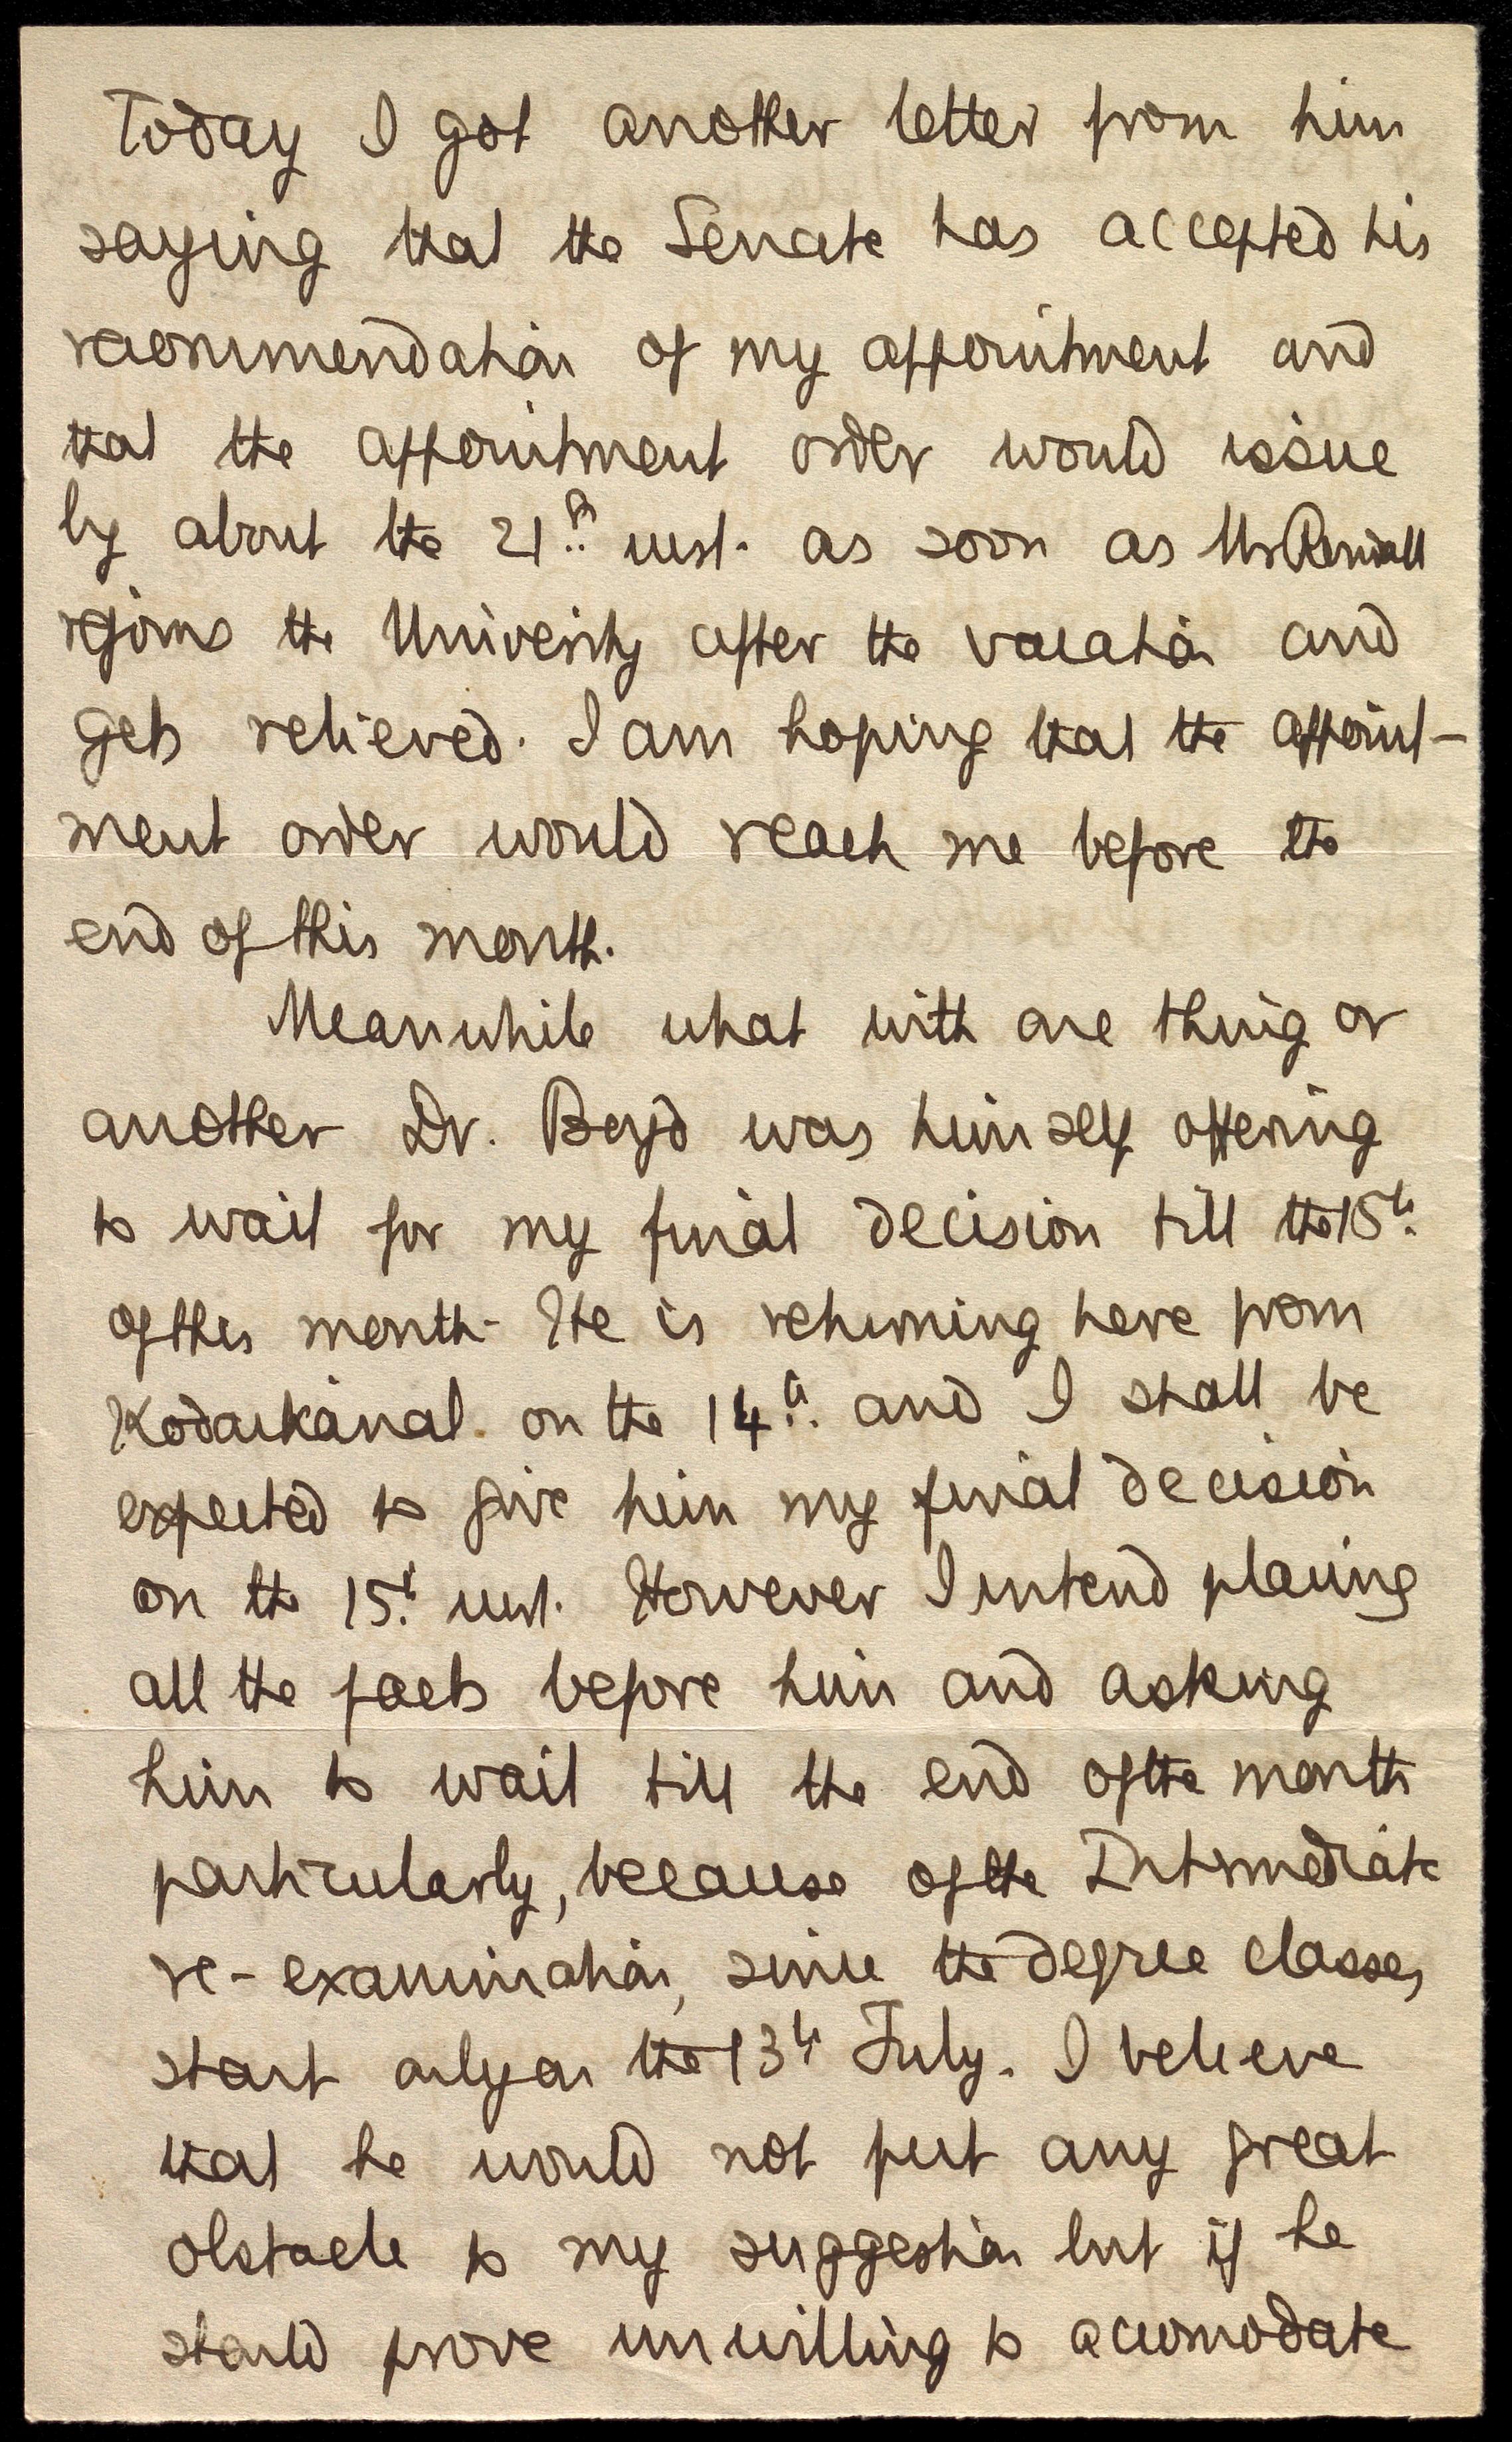 Today I got another letter from him
saying that the Senate has accepted his
recommendation of my appointment and
that the appointment order would issue
by about the 21st inst. as soon as Mr Rendall
rejoins the University after the vacation and
gets relieved. I am hoping that the appoint-
ment order would reach me before the
end of this month.
Meanwhile what with one thing or
another Dr. Boyd was himself offering
to wait for my final decision till the 15th
of this month. He is returning here from
Kodaikanal on the 14th and I shall be
expected to give him my final decision
on the 15th inst. However I intend placing
all the facts before him and asking
him to wait till the end of the month
particularly, because of the Intermediate
re-examination, since the degree classes
start only on the 13th July. I believe
that he would not put any great
obstacle to my suggestion but if he
should prove unwilling to accomodate